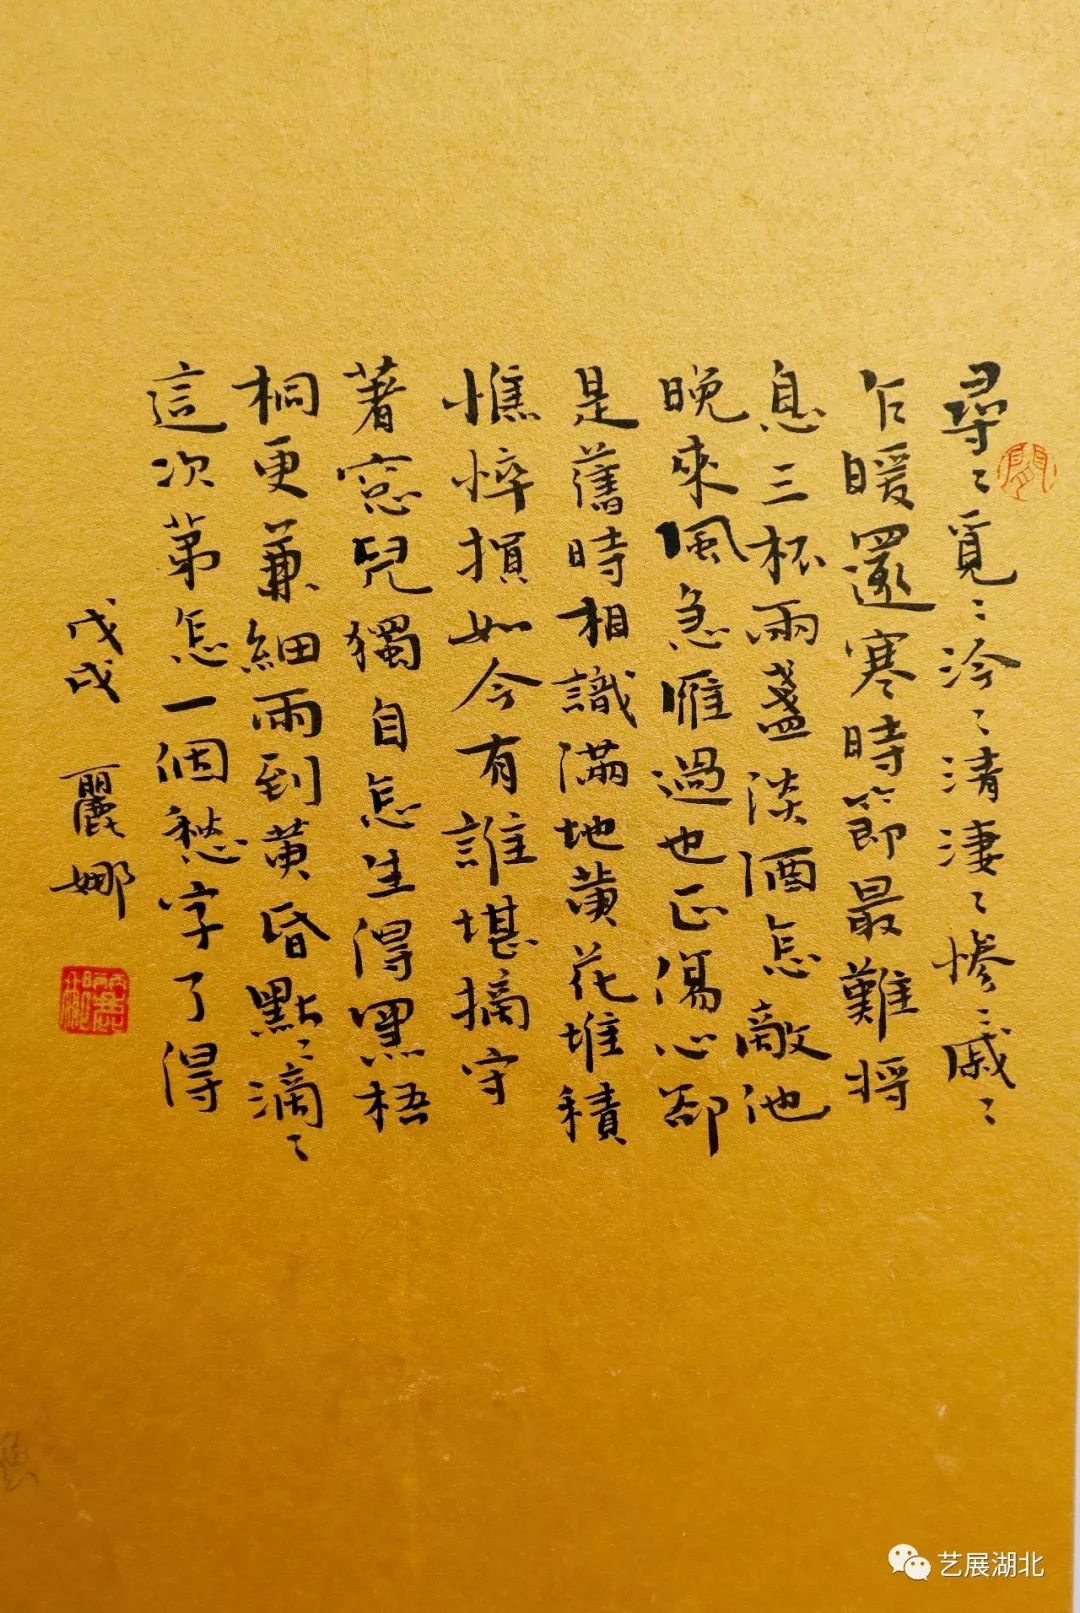 尋〻覓〻冷〻清淒〻慘〻戚〻
乍暖還寒時節最難将
息三杯兩盞淡酒怎敵他
晚來風急雁過也正傷心卻
是舊時相識滿地黃花堆積
憔悴損如今有誰堪摘守
著窓兒獨自怎生得黑梧
桐更兼細雨到黃昏點〻滴〻
這次第怎一個愁字了得
戊戌 麗娜
艺展湖北